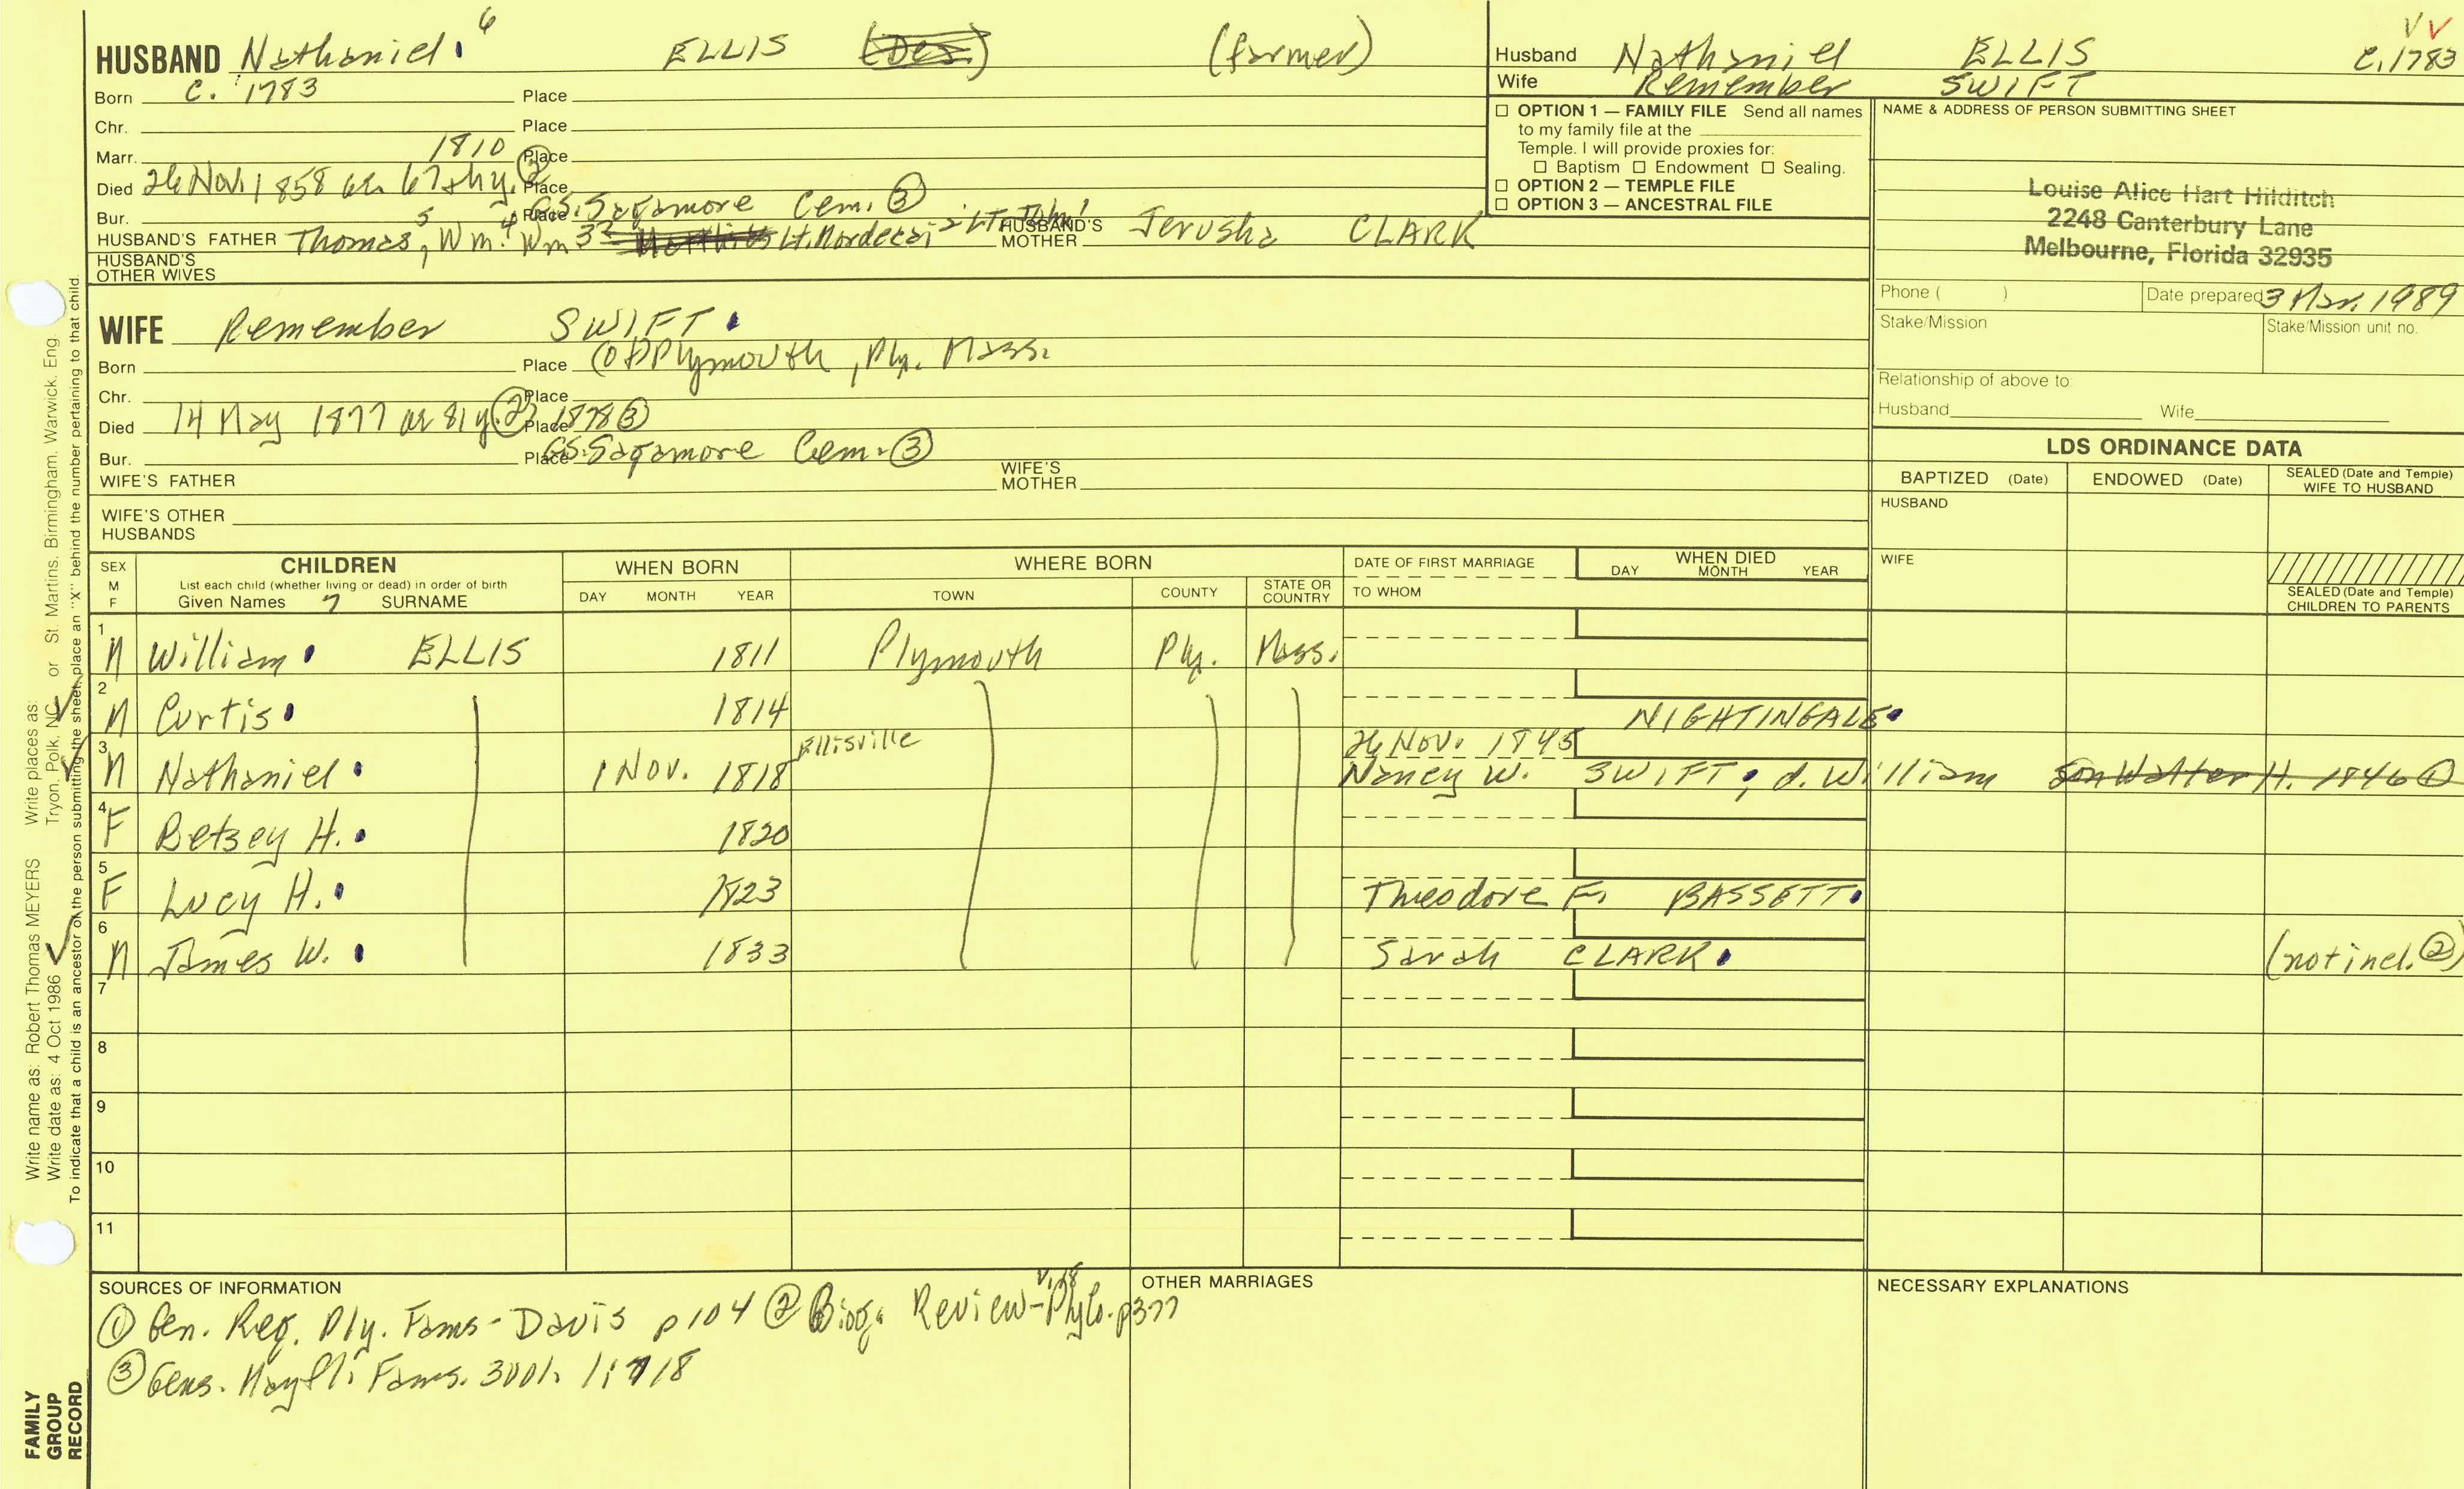 HUSBAND Nathaniel 6 ELLIS (farmer)
Born c. 1783 Place
Chr. Place
Marr. 1810 Place
Died 26 Nov. 1858 Place
Bur. Place GS. Sagamore Cem. ③
HUSBAND'S FATHER Thomas 5, Wm. 4 Wm 3 Lt. Mordecai 2 Lt. John 1 HUSBAND'S MOTHER Jerusha CLARK
HUSBAND'S OTHER WIVES
WIFE Remember SWIFT
Born Place (of) Plymouth, Ply. Mass.
Chr. Place
Died 14 May 1877 ae 81 y. ② Place 1878 ③
Bur. Place GS. Sagamore Cem. ③
WIFE'S FATHER WIFE'S MOTHER
WIFE'S OTHER HUSBANDS
Husband Nathaniel ELLIS c. 1783
Wife Remember SWIFT
☐ OPTION 1 — FAMILY FILE Send all names
to my family file at the
Temple. I will provide proxies for:
☐ Baptism ☐ Endowment ☐ Sealing.
☐ OPTION 2 — TEMPLE FILE
☐ OPTION 3 — ANCESTRAL FILE
NAME & ADDRESS OF PERSON SUBMITTING SHEET
Louise Alice Hart Hilditch
2248 Canterbury Lane
Melbourne, Florida 32935
Phone ( ) Date prepared 3 Mar. 1989
Stake/Mission Stake/Mission unit no.
Relationship of above to:
Husband Wife
LDS ORDINANCE DATA
BAPTIZED (Date) ENDOWED (Date) SEALED (Date and Temple) WIFE TO HUSBAND
HUSBAND
WIFE
SEALED (Date and Temple) CHILDREN TO PARENTS
SEX M F
CHILDREN
List each child (whether living or dead) in order of birth
Given Names 7 SURNAME
WHEN BORN
DAY MONTH YEAR
WHERE BORN
TOWN COUNTY STATE OR COUNTRY
DATE OF FIRST MARRIAGE
TO WHOM
WHEN DIED
DAY MONTH YEAR
1 M William ELLIS 1811 Plymouth Ply. Mass.
2 M Curtis 1814 NIGHTINGALE
3 M Nathaniel 1 Nov. 1818 Ellisville 26 Nov. 1845
Nancy W. SWIFT, d. William Son Walter H. 1846 ①
4 F Betsey H. 1820
5 F Lucy H. 1823 Theodore F. BASSETT
6 M James W. 1833 Sarah CLARK (not incl. ②)
7
8
9
10
11
SOURCES OF INFORMATION
① Gen. Reg. Ply. Fams - Davis p 104 ② Biog. Review - v. 18 Ply Co. p377
③ Gens. Mayfl. Fams. 
OTHER MARRIAGES
NECESSARY EXPLANATIONS
Write name as: Robert Thomas MEYERS Write places as:
Write date as: 4 Oct 1986 Tryon, Polk, NC or St. Martins, Birmingham, Warwick, Eng
To indicate that a child is an ancestor of the person submitting the sheet, place an "X" behind the number pertaining to that child.
FAMILY
GROUP
RECORD